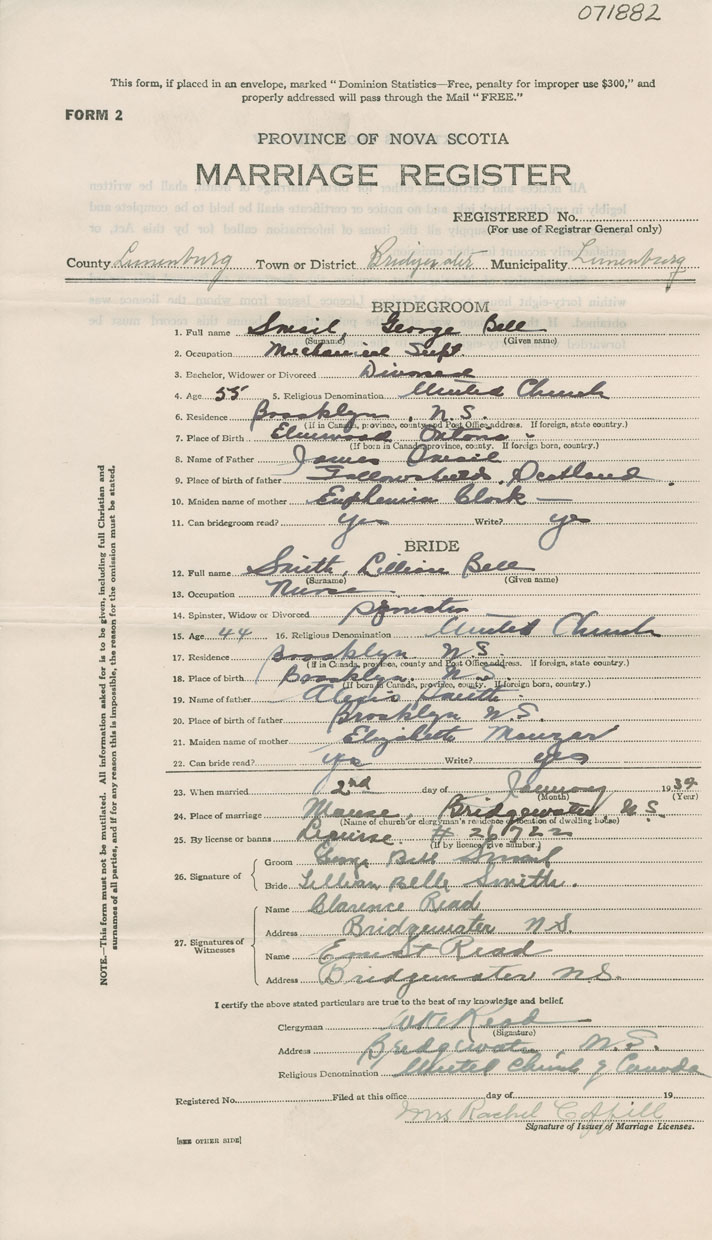 071882
This form, if placed in an envelope, marked "Dominion Statistics—Free, penalty for improper use $300," and
properly addressed will pass through the Mail "FREE."
FORM 2
PROVINCE OF NOVA SCOTIA
MARRIAGE REGISTER
REGISTERED No.
(For use of Registrar General only)
County Lunenburg Town or District Bridgewater Municipality Lunenburg
BRIDEGROOM
1. Full name Smail, George Bell
(Surname) (Given name)
2. Occupation Mechanical Supt.
3. Bachelor, Widower or Divorced Divorced
4. Age 55 5. Religious Denomination United Church
6. Residence Brooklyn, N.S.
(If in Canada, province, county and Post Office address. If foreign, state country.)
7. Place of Birth Elmwood
(If born in Canada, province, county. If foreign born, country.)
8. Name of Father James Smail
9. Place of birth of father Scotland
10. Maiden name of mother Euphemia
11. Can bridegroom read? yes Write? yes
BRIDE
12. Full name Smith, Lillian Bell
(Surname) (Given name)
13. Occupation Nurse
14. Spinster, Widow or Divorced Spinster
15. Age 44 16. Religious Denomination United Church
17. Residence Brooklyn N.S.
(If in Canada, province, county and Post Office address. If foreign, state country.)
18. Place of birth Brooklyn. N.S.
(If born in Canada, province, county. If foreign born, country.)
19. Name of father Smith
20. Place of birth of father Brooklyn N.S.
21. Maiden name of mother Elizabeth
22. Can bride read? yes Write? yes
23. When married 2nd day of January 1939
(Month) (Year)
24. Place of marriage Manse, Bridgewater, N.S.
(Name of church or clergyman's residence or location of dwelling house)
25. By license or banns License # 26722
(If by licence, give number.)
26. Signature of
Groom George Bell Smail
Bride Lillian Belle Smith.
27. Signatures of Witnesses
Name Clarence Read
Address Bridgewater N.S.
Name Ernest Read
Address Bridgewater N.S.
I certify the above stated particulars are true to the best of my knowledge and belief.
Clergyman Read
(Signature)
Address Bridgewater, N.S.
Religious Denomination United Church of Canada
Registered No. Filed at this office day of 19
Mrs Rachel
Signature of Issuer of Marriage Licenses.
[SEE OTHER SIDE]
NOTE.—This form must not be mutilated. All information asked for is to be given, including full Christian and
surnames of all parties, and if for any reason this is impossible, the reason for the omission must be stated.